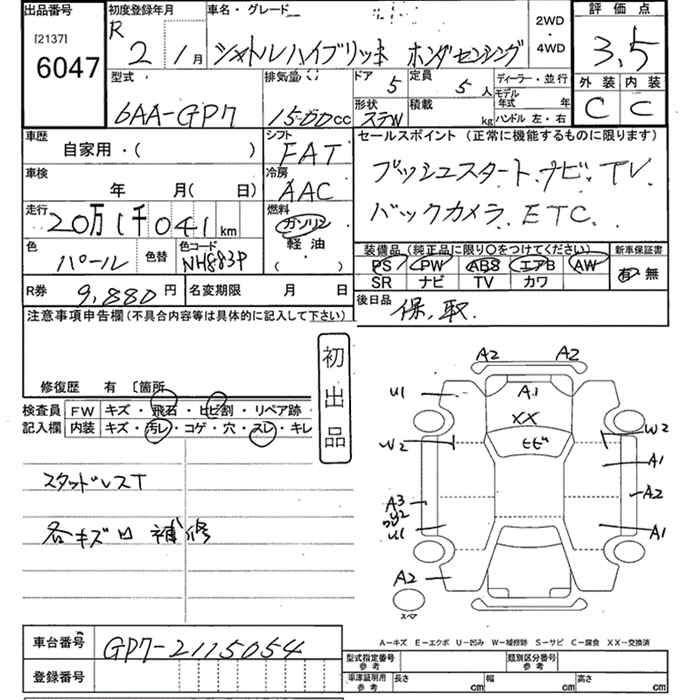 出品番号 初度登録年月 車名・グレード 評価点
[2137] R 2WD
6047 2 1月 シャトルハイブリッド ホンダセンシング ・4WD 3,5
型式 排気量 ドア 5 定員 5人 ディーラー・並行 外装 内装
6AA-GP7 1500cc 形状 ステW 積載 kg モデル年式 年 C C
ハンドル 左・右
車歴 シフト セールスポイント (正常に機能するものに限ります)
自家用・( ) FAT プッシュスタート ナビ、TV
車検 冷房
年 月( 日) AAC バックカメラ ETC
走行 燃料
20万1千041km ガソリン
色 色替 色コード 軽油 装備品(純正品に限り○をつけてください) 新車保証書
パール NH883P ( ) PS PW ABS エアB AW 有 無
SR ナビ TV カワ
R券 9,880円 名変期限 月 日 後日品
注意事項申告欄(不具合内容等は具体的に記入して下さい) 保、取
初出品
修復歴 有 〔箇所
検査員 FW キズ・飛石・ヒビ割・リペア跡・
記入欄 内装 キズ・汚レ・コゲ・穴・スレ・キレ
スタッドレスT
各キズ凹 補修
A2 A2
U1 A1
XX
W2 ヒビ W2
A1
A3 A2
U1 A1
A2
スペア
車台番号 GP7-2115054
A-キズ E-エクボ U-凹み W-補修跡 S-サビ C-腐食 XX-交換済
登録番号
型式指定番号 参考 類別区分番号 参考
車庫証明用 参考 長さ cm 幅 cm 高さ cm